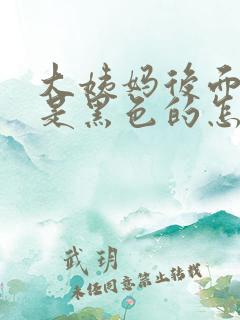 大姨妈后面
是黑色的怎
武玥
未经同意禁止转载